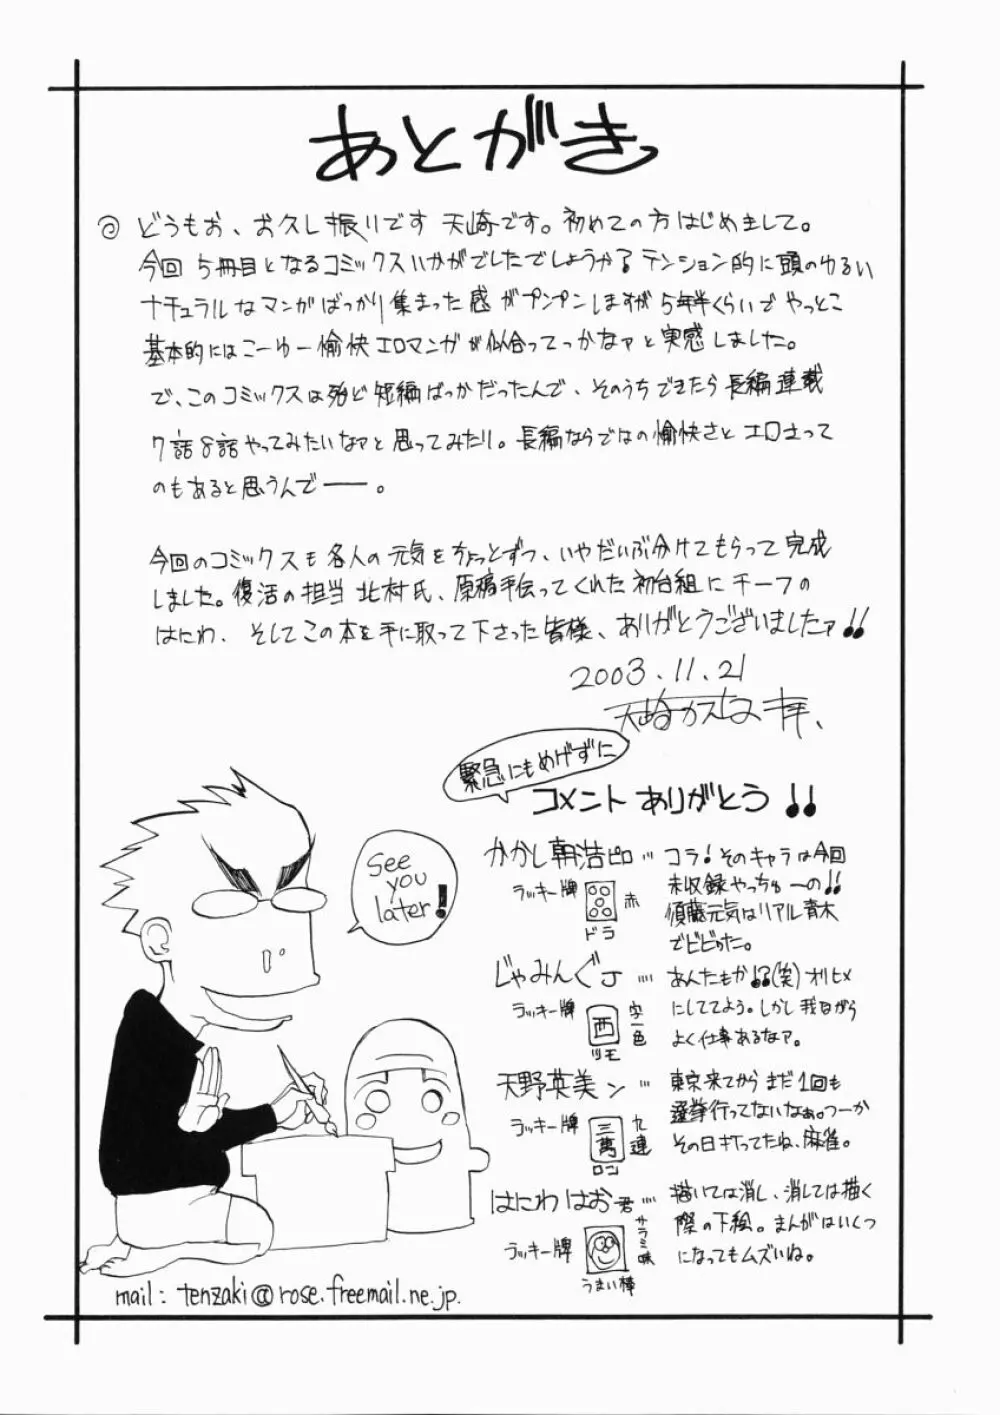 あとがき
◎ どうもお、お久し振りです 天崎です。初めての方はじめまして。
今回 5冊目となるコミックスいかがでしたでしょうか？テンション的に頭のゆるい
ナチュラルなマンガばっかり集まった感がプンプンしますが5年半くらいでやっとこ
基本的にはこーゆー愉快エロマンガが似合ってっかなァと実感しました。
で、このコミックスは殆ど短編ばっかだったんで、そのうちできたら長編連載
7話8話やってみたいなァと思ってみたり。長編ならではの愉快さとエロさって
のもあると思うんで――。
今回のコミックスも各人の元気をちょっとずつ、いやだいぶ分けてもらって完成
しました。復活の担当 北村氏、原稿手伝ってくれた初台組にチーフの
はにわ、そしてこの本を手に取って下さった皆様、ありがとうございましたァ!!
2003.11.21
天崎カスなま拝、
緊急にもめげずに
コメント ありがとう!!
See
you
later!
かかし朝浩ピロ… コラ！そのキャラは今回
未収録やっちゅーの!!
須藤元気はリアル青木
でビビった。
ラッキー牌 赤
ドラ
じゃみんぐJ… あんたもか!?(笑)オリヒメ
にしててよう。しかし我ながら
よく仕事あるなァ。
ラッキー牌 西 字一色
ツモ
天野英美ン… 東京来てからまだ1回も
選挙行ってないなぁ。つーか
その日打ってたね、麻雀。
ラッキー牌 三萬 九連
ロン
はにわはお君… 描いては消し、消しては描く
際の下絵。まんがはいくつ
になってもムズいね。
ラッキー牌 サラミ味
うまい棒
mail: tenzaki@rose.freemail.ne.jp.